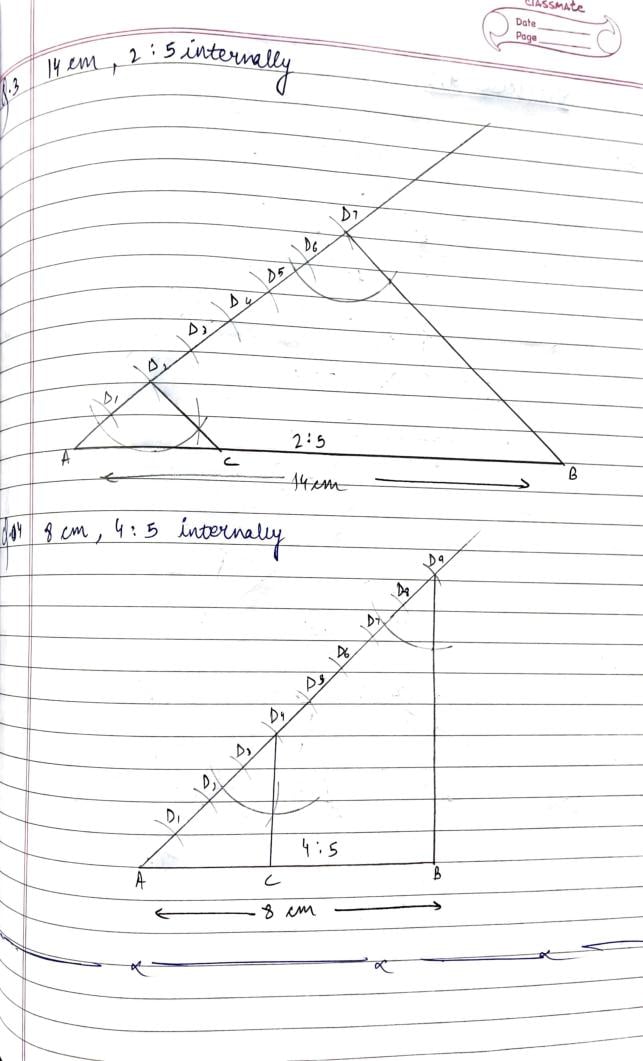 CLASSMATE
Date
Page
Q.3 14 cm, 2 : 5 internally
D7
D6
D5
D4
D3
D2
D1
2 : 5
A C B
14 cm
8 cm, 4 : 5 internally
D9
D8
D7
D6
D5
D4
D3
D2
D1
4 : 5
A C B
8 cm